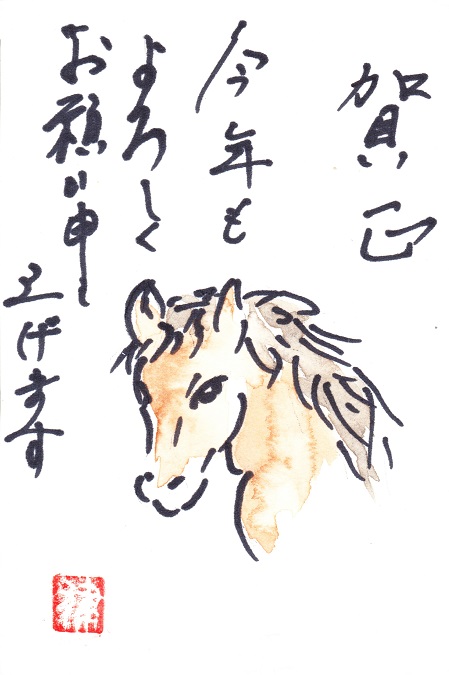 賀正
今年も
よろしく
お願い申し
上げます